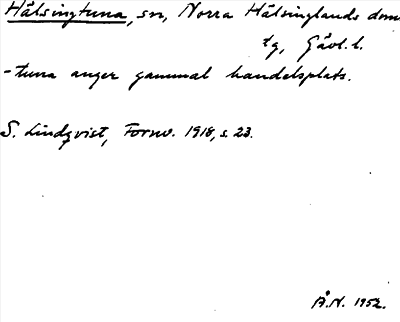 Hälsingtuna, sn, Norra Hälsinglands dom
tg, Gävl. l.
-tuna anger gammal handelsplats.
S. Lindqvist, Fornv. 1918, s. 23.
Å.N. 1952.